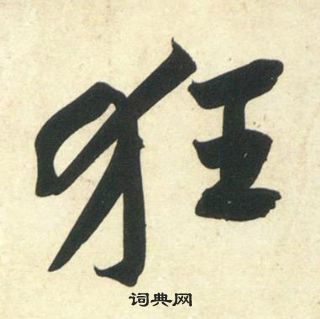 狂
词典网